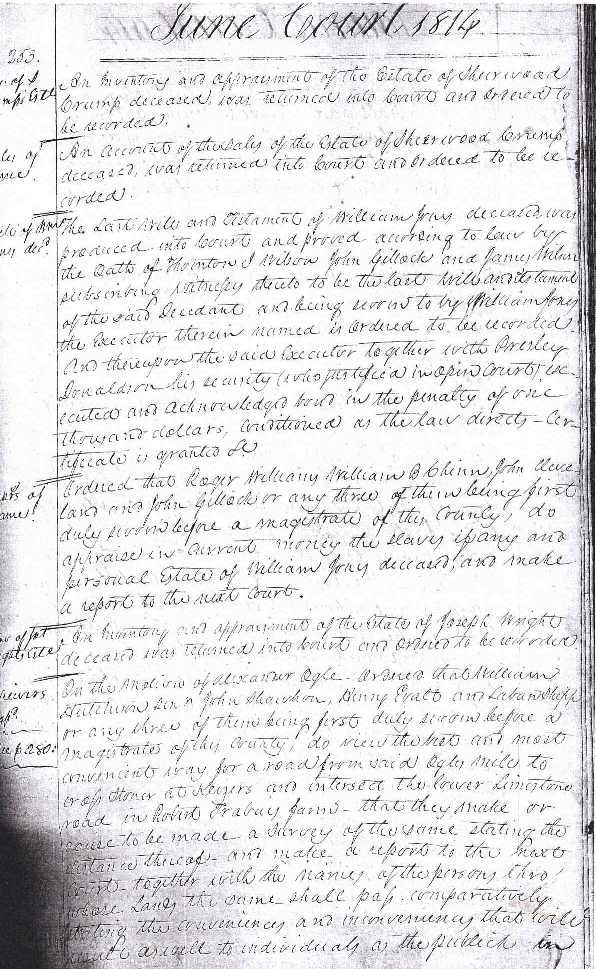 June Court 1814
253.
An Inventory and appraisment of the Estate of Sherwood
Crump deceased, was returned into Court and Ordered to
be recorded.
An account of the sales of the Estate of Sherwood Crump
deceased, was returned into Court and ordered to be re-
corded.
The Last Will and Testament of William Jones deceased, was
produced into Court and proved according to law by
the Oath of Thornton J Wilson John Gillock and James Wilson
subscribing witnesses thereto to be the last Will and testament
of the said Decedant and being sworn to by William Jones
the Executor therein named is Ordered to be recorded.
And thereupon the said Executor together with Presley
Donaldson his security (who justified in open Court) ex-
ecuted and acknowledged bond in the penalty of one
thousand dollars, conditioned as the law directs - Cer-
tificate is granted &c
Ordered that Roger Williams William B Chinn, John Cleve-
land and John Gillock or any three of them being first
duly sworn before a magistrate of this County, do
appraise in current money the slaves if any and
personal Estate of William Jones deceased, and make
a report to the next Court.
An Inventory and appraisment of the Estate of Joseph Wright
deceased was returned into Court and Ordered to be recorded
On the motion of Alexander Ogle - Ordered that William
Hutchison senr John Shawhan, Henry Pratt and Laban
or any three of them being first duly sworn before a
magistrate of this County, do view the best and most
convenient way for a road from said Ogles Mill to
cross Stoner at Seizers and intersect the lower Limestone
road in Robert Trabues farm - that they make or
cause to be made a survey of the same stating the
distance thereof - and make a report to the next
Court - together with the names of the persons thro'
whose Lands the same shall pass comparatively
stating the conveniences and inconveniences that will
result as well to individuals as the publick in